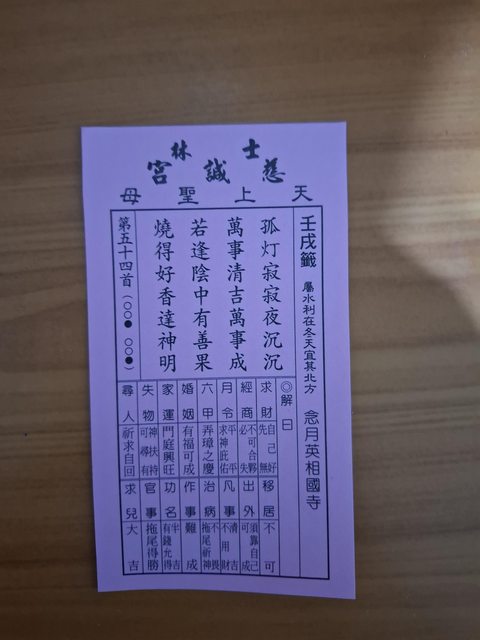 士林
慈諴宮
天上聖母
壬戌籤 屬水利在冬天宜其北方 念月英相國寺
孤灯寂寂夜沉沉
萬事清吉萬事成
若逢陰中有善果
燒得好香達神明
第五十四首(○○● ○○●)
◎解曰
求財 自己好先無
移居 不可
經商 不可合夥必失
出外 須靠自己可成
月令 平平求神庇佑
凡事 清吉不用財
六甲 弄璋之慶
治病 不畏拖尾祈神
婚姻 有福可成
作事 難成
家運 門庭興旺
功名 半吉有錢允得
失物 神扶持可尋有
官事 拖尾得勝
尋人 祈求自回
求兒 大吉